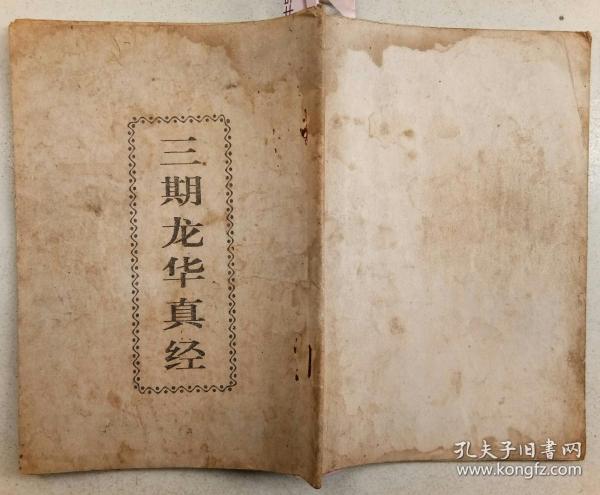 三期龙华真经
孔夫子旧书网
www.kongfz.com